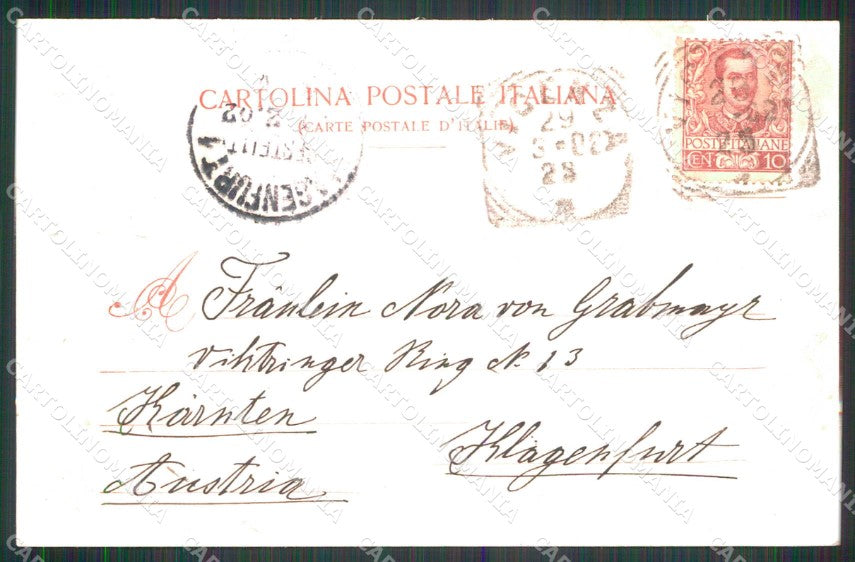 CARTOLINA POSTALE ITALIANA
(CARTE POSTALE D'ITALIE)
29
3-02
2S
POSTE ITALIANE
CEN 10
A Fräulein Nora von Grabmayr
Viktringer Ring N. 13
Kärnten
Klagenfurt
Austria
CARTOLINOMANIA